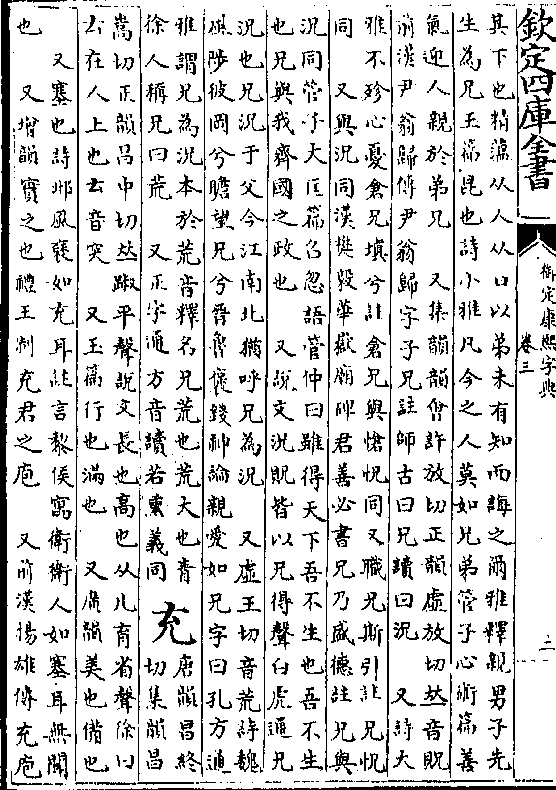 欽定四庫全書
御定康熙字典
卷三
二
其下也精薀从人从口以弟未有知而誨之爾雅釋親男子先
生為兄玉篇昆也詩小雅凡今之人莫如兄弟管子心術篇善
氣迎人親於弟兄 又集韻韻會許放切正韻虛放切𠀤音貺
前漢尹翁歸傳尹翁歸字子兄註師古曰兄讀曰況 又詩大
雅不殄心憂倉兄塡兮註倉兄與愴怳同又職兄斯引註兄怳
同 又與況同漢樊毅華嶽廟碑君善必書兄乃盛德註兄與
況同管子大匡篇召忽語管仲曰雖得天下吾不生也吾不生
也兄與我齊國之政也 又說文況貺皆以兄得聲白虎通兄
況也兄況于父今江南北猶呼兄為況 又虛王切音荒詩魏
風陟彼岡兮瞻望兄兮晉魯褒錢神論親愛如兄字曰孔方通
雅謂兄為況本於荒音釋名兄荒也荒大也靑
徐人稱兄曰荒 又正字通方音讀若熏義同
充
唐韻昌終
切集韻昌
嵩切正韻昌中切𠀤踧平聲說文長也高也从儿育省聲徐曰
𠫓在人上也𠫓音突 又玉篇行也滿也 又廣韻美也備也
又塞也詩邶風褎如充耳註言黎侯寓衛衛人如塞耳無聞
也 又增韻實之也禮王制充君之庖 又前漢揚雄傳充庖